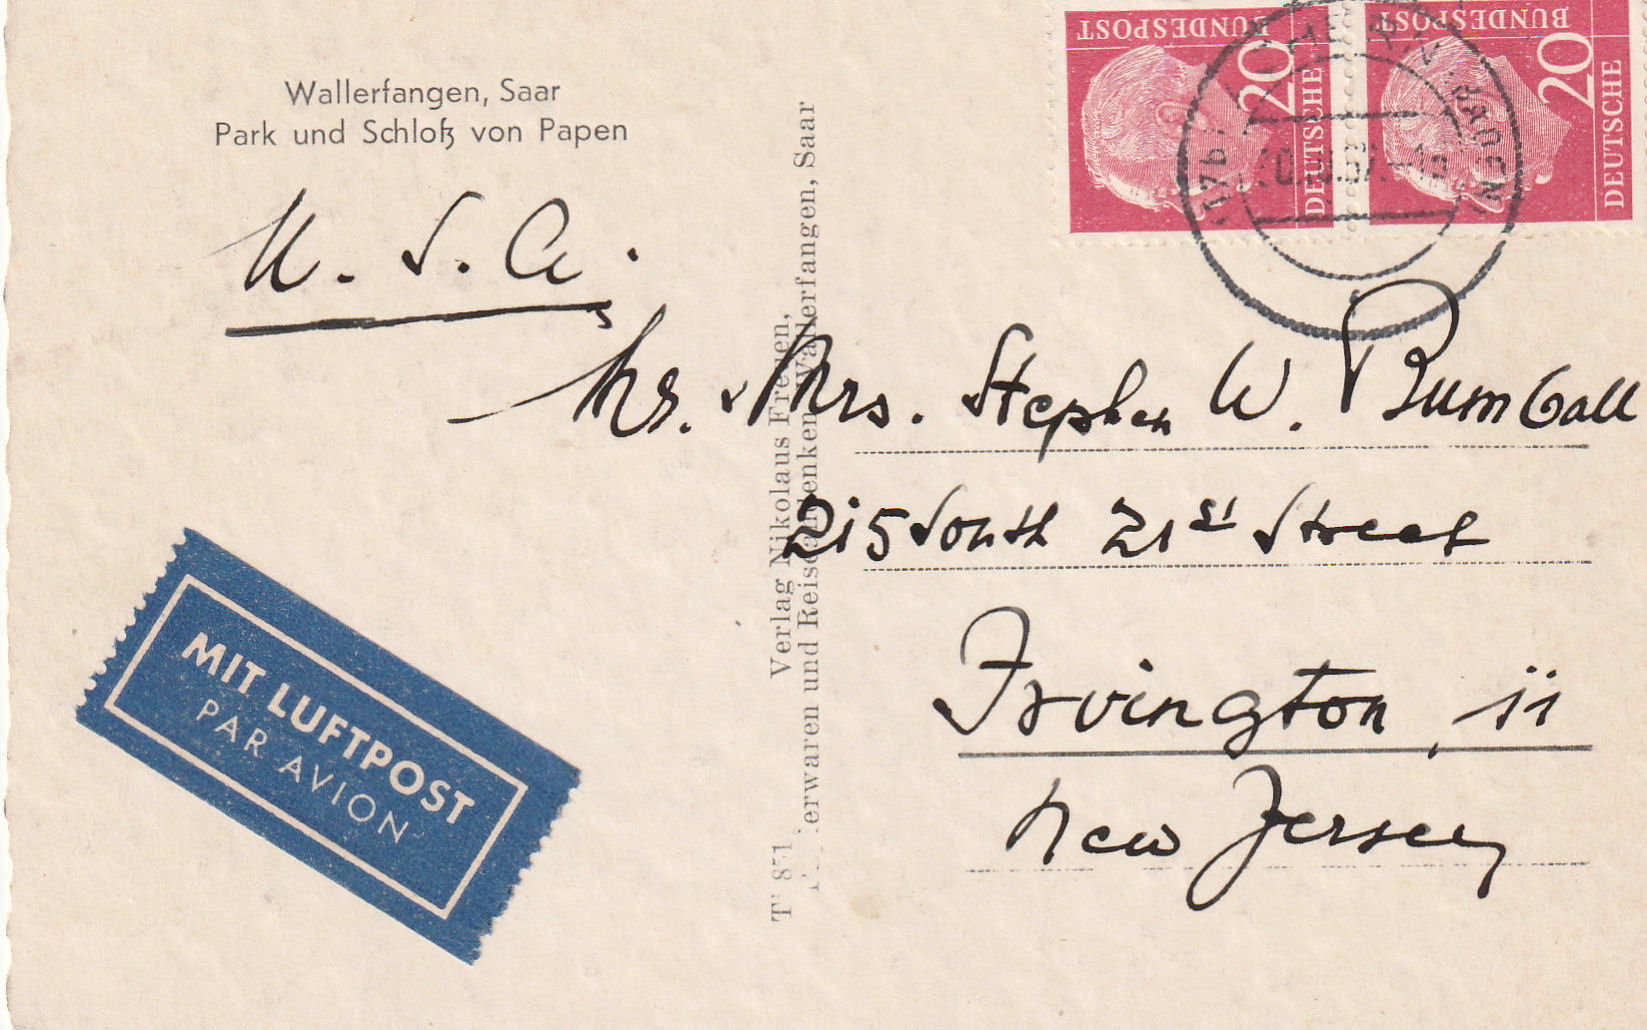 Wallerfangen, Saar
Park und Schloß von Papen
U. S. A.
Mr. & Mrs. Stephen W. Bumball
215 South 21st Street
Irvington, 11
New Jersey
MIT LUFTPOST
PAR AVION
Verlag Nikolaus Freuen,
und Reiseandenken, Wallerfangen, Saar
DEUTSCHE
BUNDESPOST
20
DEUTSCHE
BUNDESPOST
20
(17b)